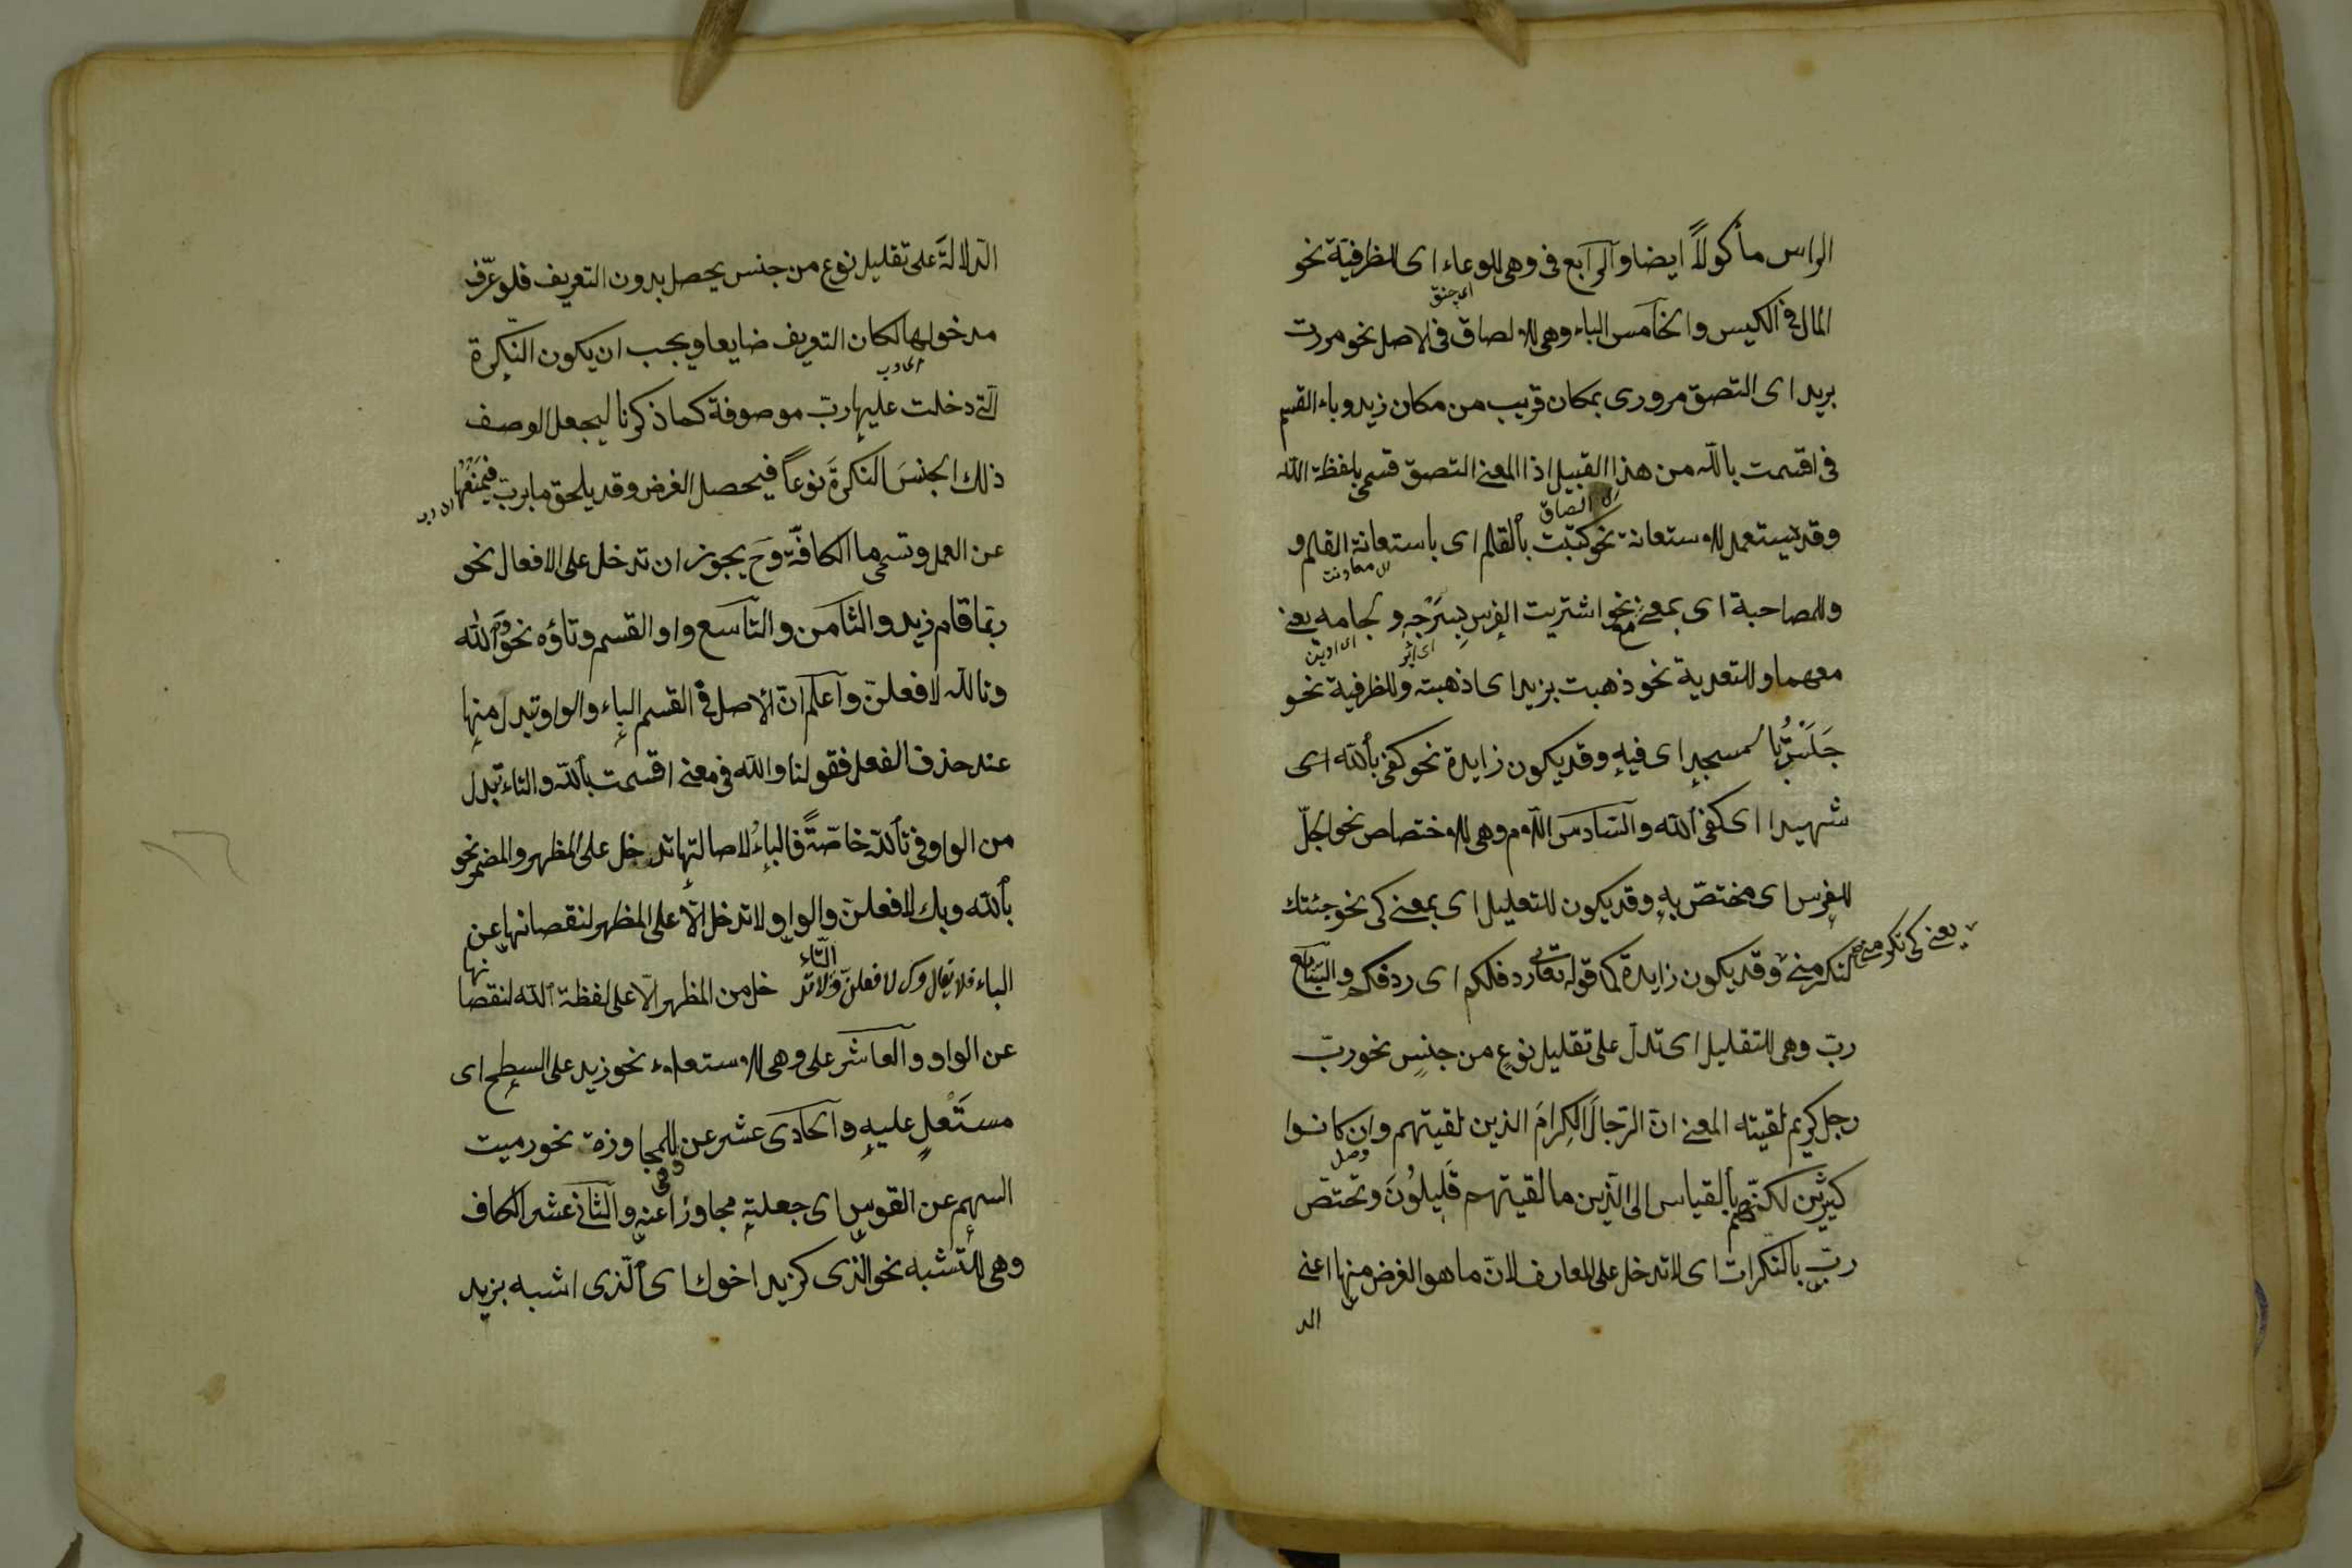 الراس مأكولاً ايضا والرابع فى وهى للوعاء اى الظرفية نحو
المال فى الكيس والخامس الباء وهى للالصاق فى الاصل نحو مررت
بزيد اى التصق مرورى بمكان قريب من مكان زيد وباء القسم
فى اقسمت بالله من هذا القبيل اذ المعنى التصق قسمى بلفظة الله
اى الصاق
وقد يستعمل للاستعانة نحو كتبت بالقلم اى باستعانة القلم و
اى معاونت
وللمصاحبة اى بمعنى مع نحو اشتريت الفرس بسَرْجِهِ ولجامه يعنى
معهما وللتعدية نحو ذهبت بزيد اى اذهبته وللظرفية نحو
جَلَسْتُ بالمسجدِ اى فيهِ وقد يكون زايدة نحو كفى بالله اى
شهيدا اى كفى الله والسّادس اللام وهى للاختصاص نحو الجلّ
للفرس اى مختصّ بهِ وقد يكون للتعليل اى بمعنى كى نحو جئتك
لتكرمنى وقد يكون زايدة كما قوله تعالى ردف لكم اى ردفكم والسّابع
يعنى كى تكرمنى
ربّ وهى للتقليل اى تدلّ على تقليل نوعٍ من جنسٍ نحو ربّ
رجل كريم لقيته المعنى انّ الرّجالَ الكِرامَ الذين لقيتهم وان كانوا
كثيرين لكنّهم بالقياس الى الّذين ما لقيتهم قَلِيلُونَ وتختصّ
ربّ بالنكرات اى لا تدخل على المعارف لانّ ما هو الغرض منها اعنى
الد
الدّلالةَ على تقليل نوع من جنس يحصل بدون التعريف فلو عرّف
مدخولها لكان التعريف ضايعا ويجب ان يكون النّكرة
اى رب
الّتى دخلت عليها ربّ موصوفة كما ذكرنا ليجعل الوصف
ذلك الجنسَ النكرةَ نوعاً فيحصل الغرض وقد يلحق ما بربّ فيمنعها
اى رب
عن العمل وتسمى ما الكافّة وح يجوز ان تدخل على الافعال نحو
ربّما قام زيد والثامن والتّاسع واو القسم وتاؤه نحو والله
وتالله لافعلنّ واعلم انّ الاصل فى القسم الباء والواو تبدل منها
عند حذف الفعل فقولنا والله فى معنى اقسمت بالله والتاء تبدل
من الواو فى تالله خاصّةً فالباءُ لاصالتها تدخل على المظهر والمضمر نحو
بالله وبك لافعلنّ والواو لا تدخل الّا على المظهر لنقصانها عن
الباء فلا يقال وك لافعلنّ والتّاء لا تدخل من المظهر الّا على لفظة الله لنقصانها
عن الواو والعاشر على وهى للاستعلاء نحو زيد على السطح اى
مستَعْلٍ عليهِ والحادى عشر عن وهى للمجاوزة نحو رميت
السهم عن القوس اى جعلته مجاوزا عنه والثّانى عشر الكاف
وهى للتّشبه نحو الذى كزيد اخوك اى الّذى اشبه بزيد